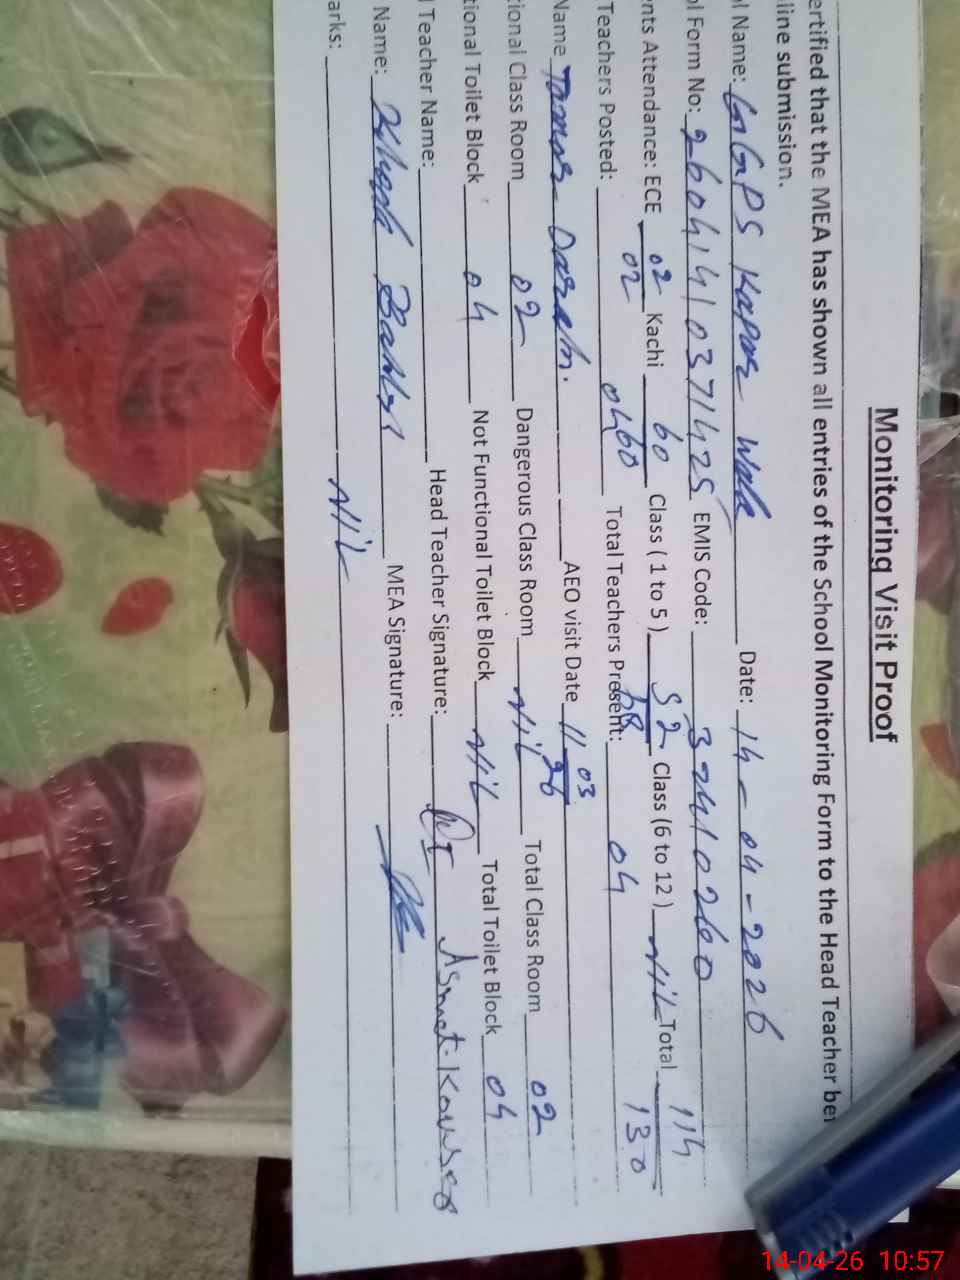 Monitoring Visit Proof
ertified that the MEA has shown all entries of the School Monitoring Form to the Head Teacher bei
line submission.
l Name: GGPS Kapoor Wala Date: 14-04-2026
l Form No: 26041410371425 EMIS Code: 32410260
nts Attendance: ECE 02/02 Kachi 60/60 Class ( 1 to 5 ) 52/ Class (6 to 12 ) Nil Total 114/130
Teachers Posted: 04 Total Teachers Present: 04
Name AEO visit Date 11 03 26
ional Class Room 02 Dangerous Class Room Nil Total Class Room 02
tional Toilet Block 04 Not Functional Toilet Block Nil Total Toilet Block 04
l Teacher Name: Head Teacher Signature: Asmat Kousar
Name: Khuda Bakhsh MEA Signature:
arks: Nil
14-04-26 10:57